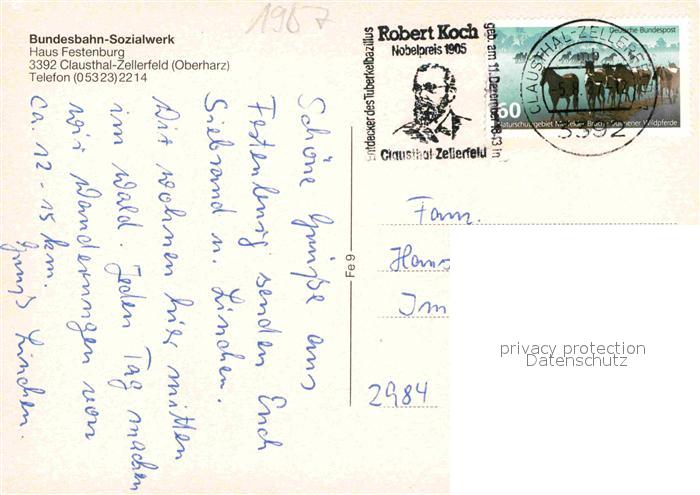 1987
Bundesbahn-Sozialwerk
Haus Festenburg
3392 Clausthal-Zellerfeld (Oberharz)
Telefon (05323) 2214
Schöne Grüße aus
Festenburg senden Euch
Siebrand u. Linchen.
Wir wohnen hier mitten
im Wald. Jeden Tag machen
wir Wanderungen von
ca. 12 - 15 km.
Linchen.
Fe 9
Entdecker des Tuberkelbazillus
Robert Koch
Nobelpreis 1905
geb. am 11. Dezember 1843 in
Clausthal-Zellerfeld
CLAUSTHAL-ZELLERFELD
3392
Deutsche Bundespost
60
Naturschutzgebiet Merfelder Bruch Dülmener Wildpferde
Fam.
Hans
Im
2984
privacy protection
Datenschutz